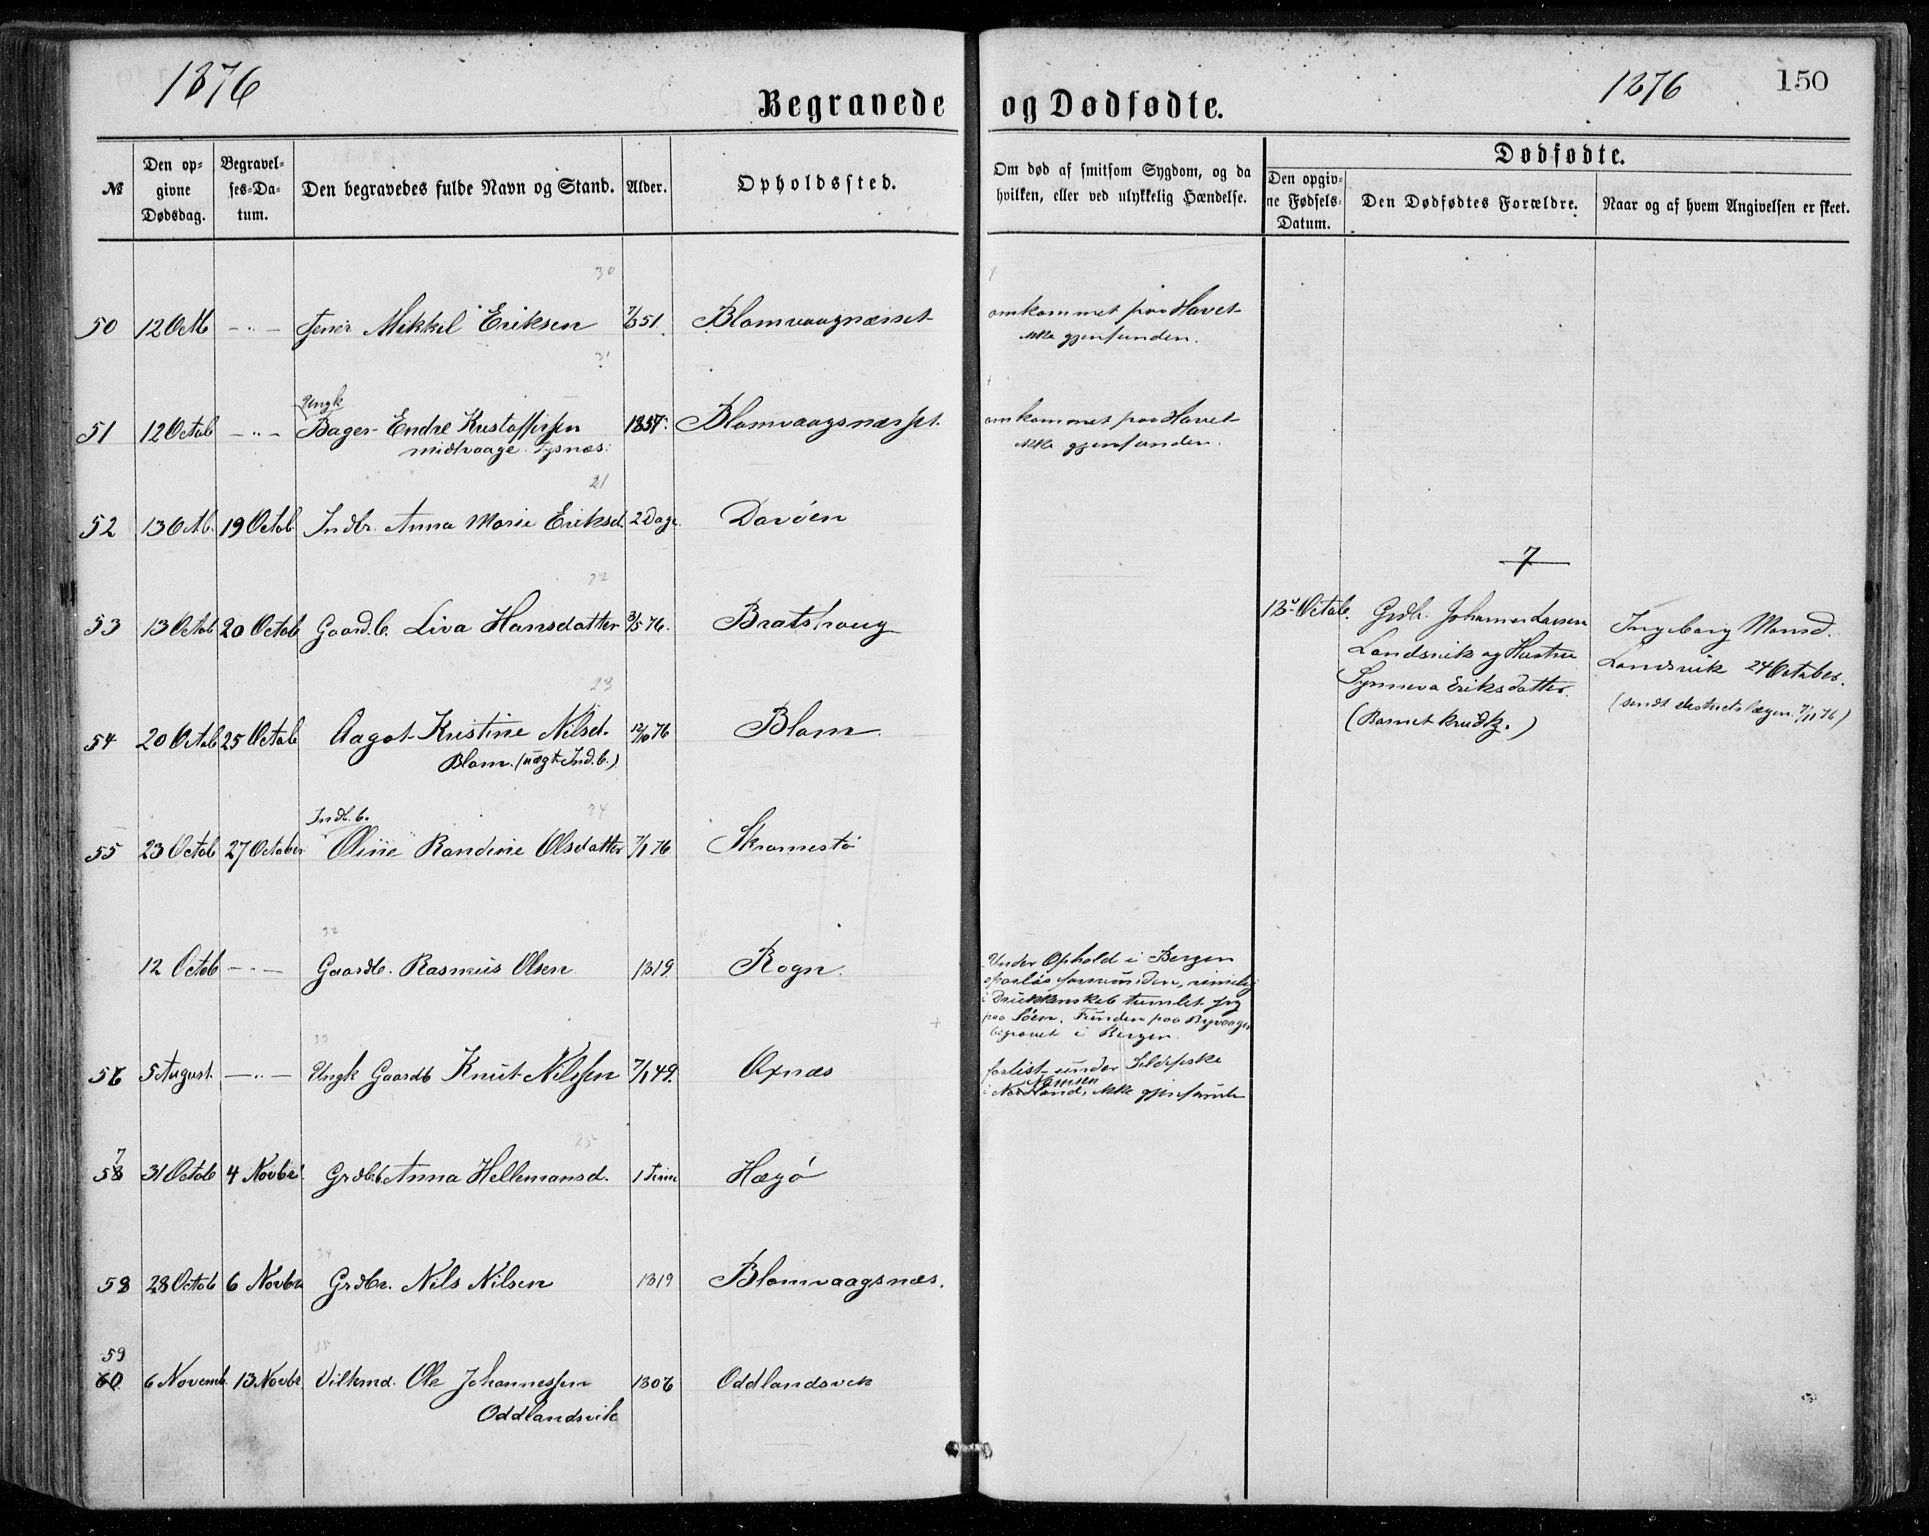 1876
Begravede og Dødfødte.
1876
150
№
Den opgivne Dødsdag.
Begravelses-Datum.
Den begravedes fulde Navn og Stand.
Alder.
Opholdssted.
Om død af smitsom Sygdom, og da hvilken, eller ved ulykkelig Hændelse.
Dødfødte.
Den opgivne Fødsels-Datum.
Den Dødfødtes Forældre.
Naar og af hvem Angivelsen er skeet.
30
50 12 Octb -"- Mikkel Eriksen 51. Blomvaagnæsset omkommet paa Havet
ikke gjenfunden.
31
Ungk
51 12 Octob -"- Bager Endre Kristoffersen 1857 Blomvaagsnæsset omkommet paa Havet
midtvaage Tysnæs: ikke gjenfunden.
21
52 13 Octb. 19 Octob Indbr. Anna Marie Eriksd. 2 Dage Davøen
22
7
53 13 Octob 20 Octob Gaardb. Liva Hansdatter 3/5 76. Bratshaug
13de Octob. Grdbr. Johannes Larsen
Landsvik og Hustru
Synneva Eriksdatter.
(Barnet
Ingeborg Monsd.
Landsvik 24 October.
(sendt districtslægen 7/11 76)
23
54 20 Octob 25 Octob Aagot Kristine Nilsd. 12/10 76 Blom
Blom. (uægt Ind.b.)
24
Indb.
55 23 Octob 27 October Oline Randine Olsdatter 7/1 76 Skramestø
32
12 Octob -"- Gaardb. Rasmus Olsen 1819 Rogn.
Under Ophold i Bergen
sporløs forsvunden, rimelig
i Drukkenskab tumlet sig
paa Søen. Funden paa
begravet i Bergen.
33
56 5 August. -"- Ungk Gaardb Knut Nilssen 7/1 49. Oxnæs
forlist under Sildefiske
Namsen
i Nordland, ikke gjenfunden
25
7
58 31 Octob 4 Novbr. Grdbr Anna Hellemansd. 1 Time Hægø
34
58 28 Octob 6 Novbr Grdbr. Nils Nilsen 1819 Blomvaagsnæs.
59
35
60 6 Novemb. 13 Novbr Vilkmd. Ole Johannessen 1806 Oddlandsvik
Oddlandsvik